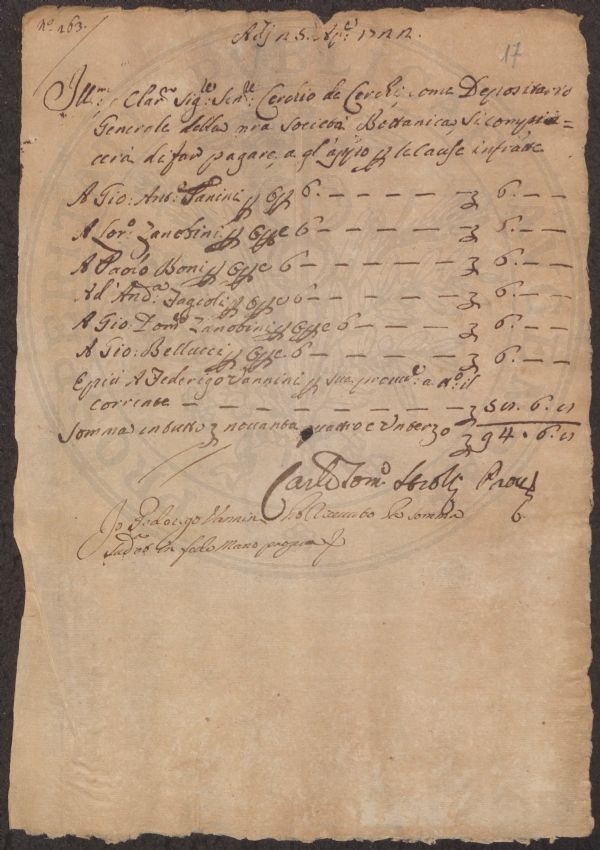 No. 263.
Adj 25. Ap.e 1722.
17
Ill.mo Clar.mo Sig.re Sen.re Cerchio de Cerchi come Depositario
Generale della nra Società Bottanica, Si compia=
cerà di far pagare, a gl'appio p le cause infratte
A Gio: Ant.o 6. — — — — — 6. — —
A Lor.o Zanobini 6 — — — — — 6. — —
A Paolo Boni 6 — — — — — 6. — —
Ad And.a Fagioli 6 — — — — — 6. — —
A Gio Dom.o Zanobini 6 — — — — 6. — —
A Gio: Bellucci 6 — — — — — 6. — —
E più A Federigo Vannini p sua a t.o il
corrente — — — — — — — 6.
Somma in tutto novanta quattro e un terzo 94. 6.
Carlo Tom.o Strozzi Prov.
Io Federigo Vannini ho ricevuto la somma
Sud.a in fede Mano propria